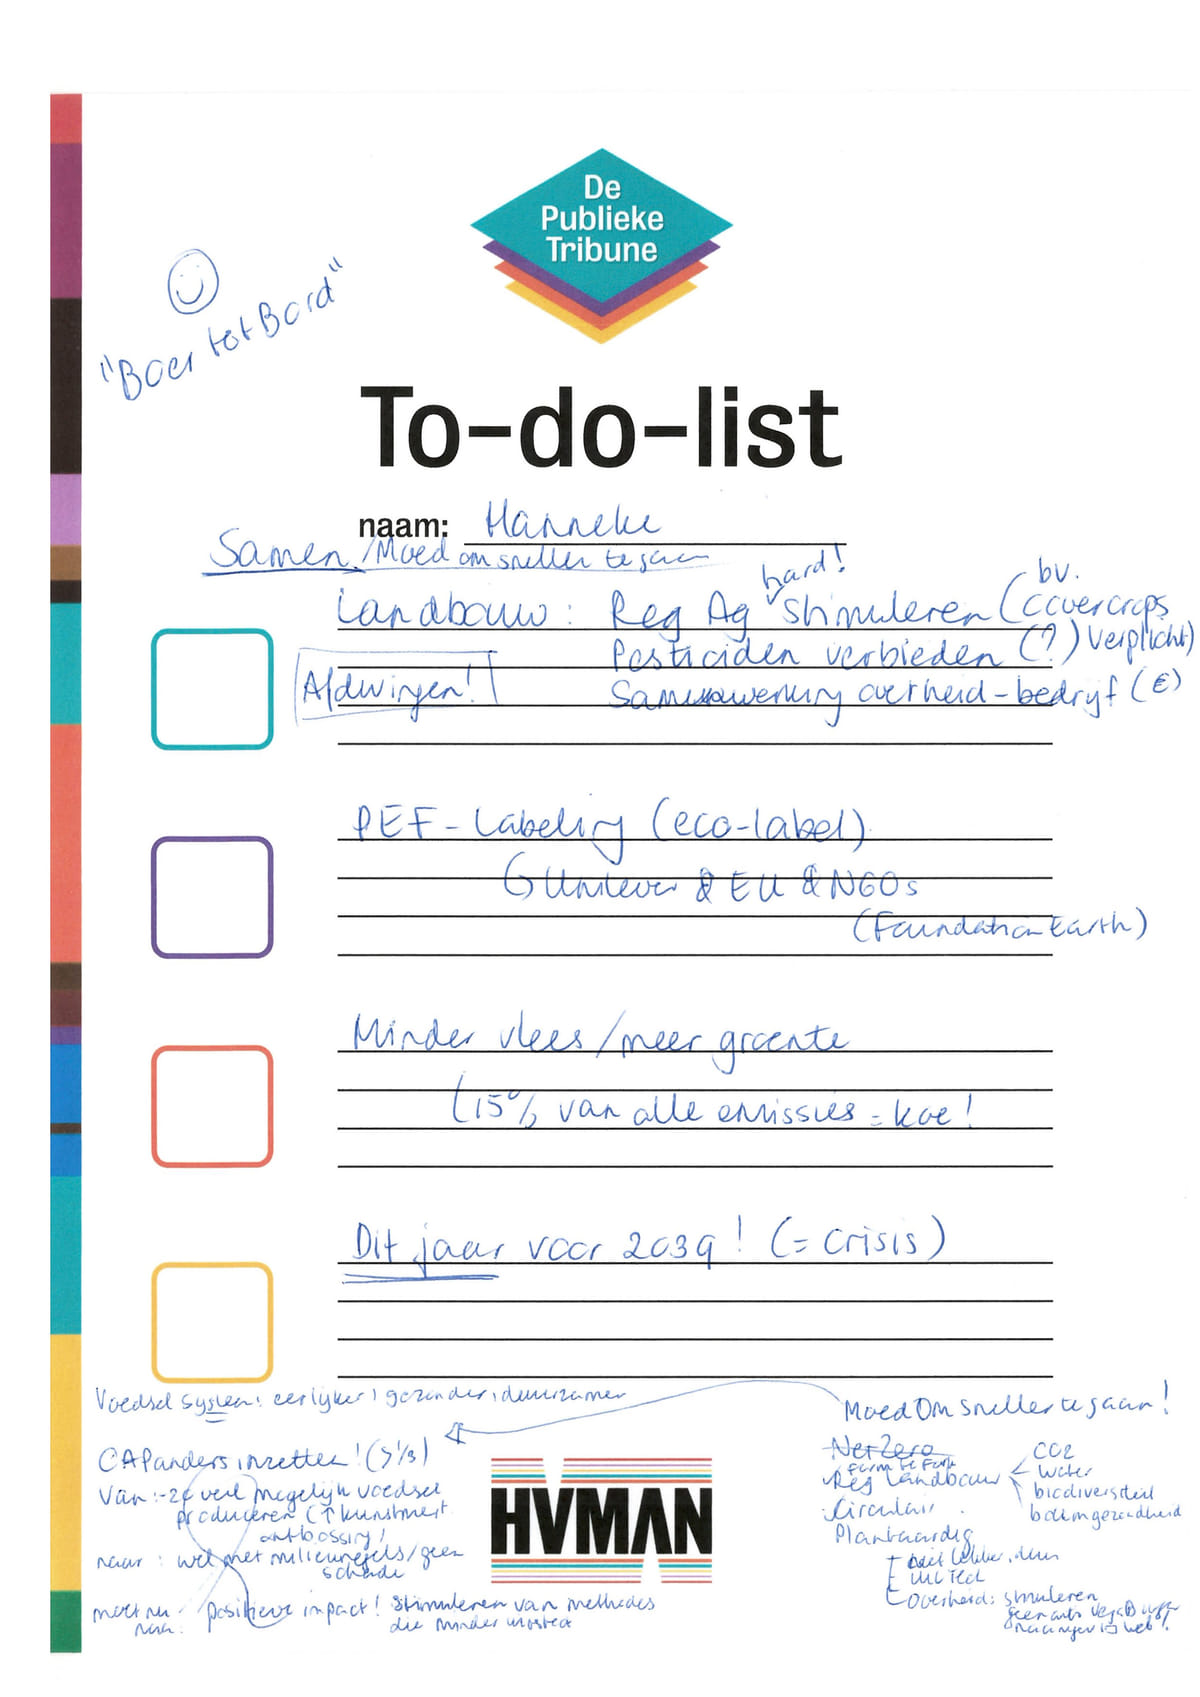 De
Publieke
Tribune
"Boer tot Bord"
To-do-list
naam: Hanneke
Samen / Moed om sneller te gaan
hard!
bv.
Landbouw: Reg Ag stimuleren (covercrops
verplicht)
Pesticiden verbieden (?)
Afdwingen!
Samenwerking overheid-bedrijf (€)
PEF-Labeling (eco-label)
Unilever & EU & NGOs
(Foundation Earth)
Minder vlees / meer groente
(15% van alle emissies = koe!
Dit jaar voor 2039! (= crisis)
Voedsel systeem: eerlijker, gezonder, duurzamer
Moed Om sneller te gaan!
CAP anders inzetten! (> 1/3)
Van: - zo veel mogelijk voedsel
produceren (↑ kunstmest
ontbossing)
naar: wel met milieuregels/geen
schade
moet nu
naar: positieve impact! stimuleren van methodes
die minder
HVMAN
Net Zero
Farm to Fork
Reg Landbouw
CO2
water
biodiversiteit
bodemgezondheid
Circulair
Plantaardig
overheid: stimuleren